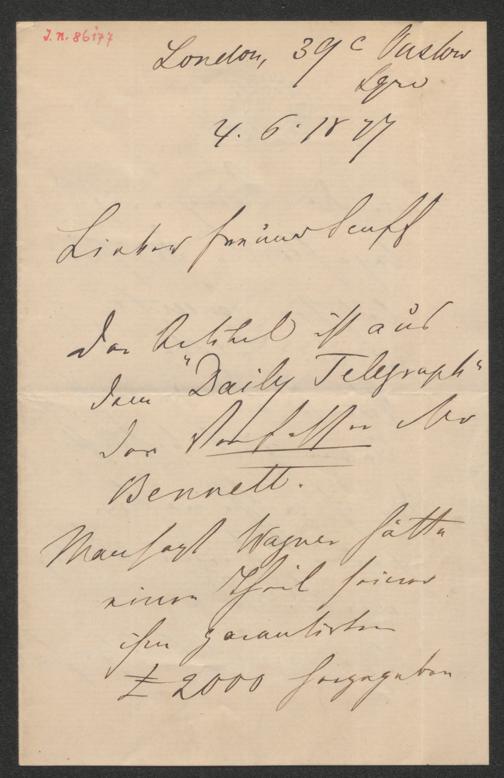 I.N. 86177
London, 39 c Onslow
Sqre
4. 6. 1877
Lieber Freund Senff
Der Artikel ist aus
dem "Daily Telegraph"
der Verfasser Mr
Bennett.
Man sagt Wagner hätte
einen Theil seiner
ihm garantirten
£ 2000 hergegeben